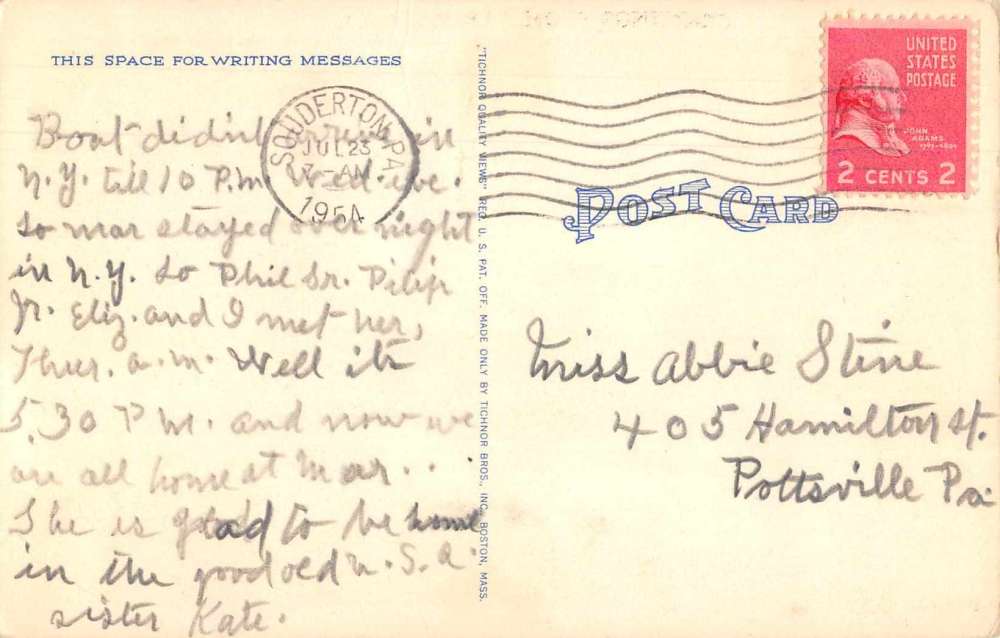 THIS SPACE FOR WRITING MESSAGES
Boat didn't arrive in
N.Y. till 10 P.M. Wed. eve.
so mar stayed over night
in N.Y. so Phil Sr. Pilip
Jr. Eliz. and I met her,
Thur. a.m. Well its
5.30 P M. and now we
are all home at Mar..
She is glad to be home
in the good old U.S.A.
sister Kate.
SOUDERTON, PA.
JUL 23
7-AM
1954
"TICHNOR QUALITY VIEWS" REG. U. S. PAT. OFF. MADE ONLY BY TICHNOR BROS., INC., BOSTON, MASS.
UNITED
STATES
POSTAGE
JOHN
ADAMS
1797-1801
2 CENTS 2
POST CARD
Miss Abbie Stine
405 Hamilton St.
Pottsville Pa